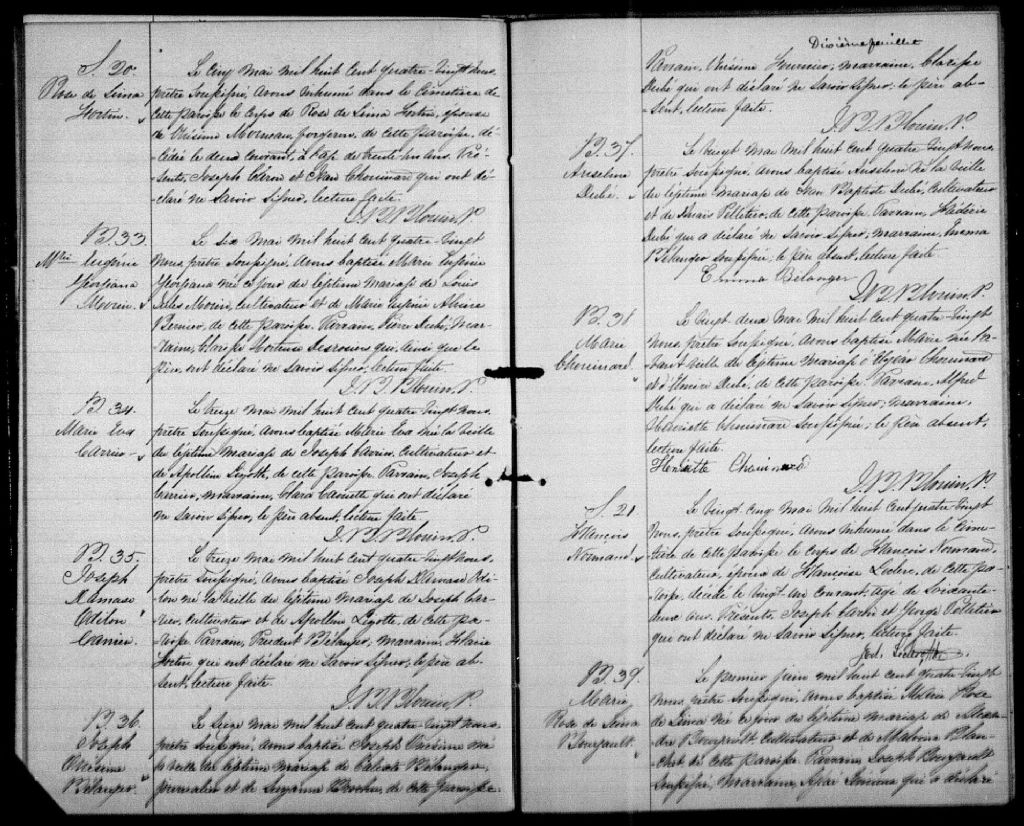 S. 20.
Rose de Lima
Fortin.
Le cinq mai mil huit cent quatre-vingt nous,
prêtre soussigné, avons inhumé dans le cimetière de
cette paroisse le corps de Rose de Lima Fortin, épouse
de Onésime Morneau, forgeron, de cette paroisse, dé-
cédée le deux courant, à l'age de trente-un ans. Pré-
sents, Joseph Caron et Jean Chouinard qui ont dé-
claré ne savoir signer, lecture faite.
J. B. Blouin, P.
B. 33.
Mie Eugénie
Georgiana
Morin.
Le six mai mil huit cent quatre-vingt
nous, prêtre soussigné, avons baptisé Marie Eugénie
Georgiana née ce jour du légitime mariage de Louis
Jules Morin, cultivateur et de Marie Eugénie Alvine
Bernier, de cette paroisse. Parrain, Pierre Dubé, mar-
raine, Clarisse Hortense Desrosiers qui, ainsi que le
père ont déclaré ne savoir signer, lecture faite.
J. B. Blouin, P.
B. 34.
Marie Eva
Carrier
Le treize mai mil huit cent quatre vingt nous,
prêtre soussigné, avons baptisé Marie Eva née la veille
du légitime mariage de Joseph Carrier, cultivateur et
de Apolline Lizotte, de cette paroisse. Parrain, Joseph
Carrier, marraine, Clara Caouette qui ont déclaré
ne savoir signer, le père absent, lecture faite.
J. B. Blouin, P.
B. 35.
Joseph
Damase
Odilon
Carrier.
Le treize mai mil huit cent quatre-vingt nous,
prêtre soussigné, avons baptisé Joseph Damase Odi-
lon né la veille du légitime mariage de Joseph Car-
rier, cultivateur et de Apolline Lizotte, de cette pa-
roisse. Parrain, Prudent Bélanger, marraine, Marie
Fortin qui ont déclaré ne savoir signer, le père ab-
sent, lecture faite.
J. B. Blouin, P.
B. 36.
Joseph
Onésime
Bélanger.
Le seize mai mil huit cent quatre-vingt nous,
prêtre soussigné, avons baptisé Joseph Onésime né
la veille du légitime mariage de Bélanger,
journalier et de Suzanne de cette paroisse.
Dixième feuillet
Parrain, Onésime marraine, Clarisse
Dubé qui ont déclaré ne savoir signer, le père ab-
sent, lecture faite.
J. B. Blouin, P.
B. 37.
Anselme
Dubé.
Le vingt mai mil huit cent quatre vingt nous,
prêtre soussigné, avons baptisé Anselme né la veille
du légitime mariage de Jean Baptiste Dubé, cultivateur
et de Pelletier, de cette paroisse. Parrain,
Dubé qui a déclaré ne savoir signer, marraine, Emma
Bélanger soussignée, le père absent, lecture faite.
Emma Bélanger
J. B. Blouin, P.
B. 38
Marie
Chouinard.
Le vingt deux mai mil huit cent quatre-vingt
nous, prêtre soussigné, avons baptisé Marie née l'a-
vant veille du légitime mariage d' Chouinard
et d' Dubé, de cette paroisse. Parrain, Alfred
Dubé qui a déclaré ne savoir signer, marraine,
Henriette Chouinard soussignée, le père absent,
lecture faite.
Henriette Chouinard
J. B. Blouin, P.
S. 21
François
Normand.
Le vingt cinq mai mil huit cent quatre vingt
nous, prêtre soussigné, avons inhumé dans le cime-
tière de cette paroisse le corps de François Normand,
cultivateur, époux de Françoise Leclerc, de cette pa-
roisse, décédé le vingt-un courant, age de soixante-
deux ans. Présents, Joseph Fortin et George Pelletier
qui ont déclaré ne savoir signer, lecture faite.
B. 39.
Marie
Rose de Lima
Bourgault.
Le premier juin mil huit cent quatre vingt
nous, prêtre soussigné, avons baptisé Marie Rose
de Lima née ce jour du légitime mariage de Alexan-
dre Bourgault, cultivateur et de Malvina Blan-
chet de cette paroisse. Parrain, Joseph Bourgault
soussigné, marraine, qui a déclaré